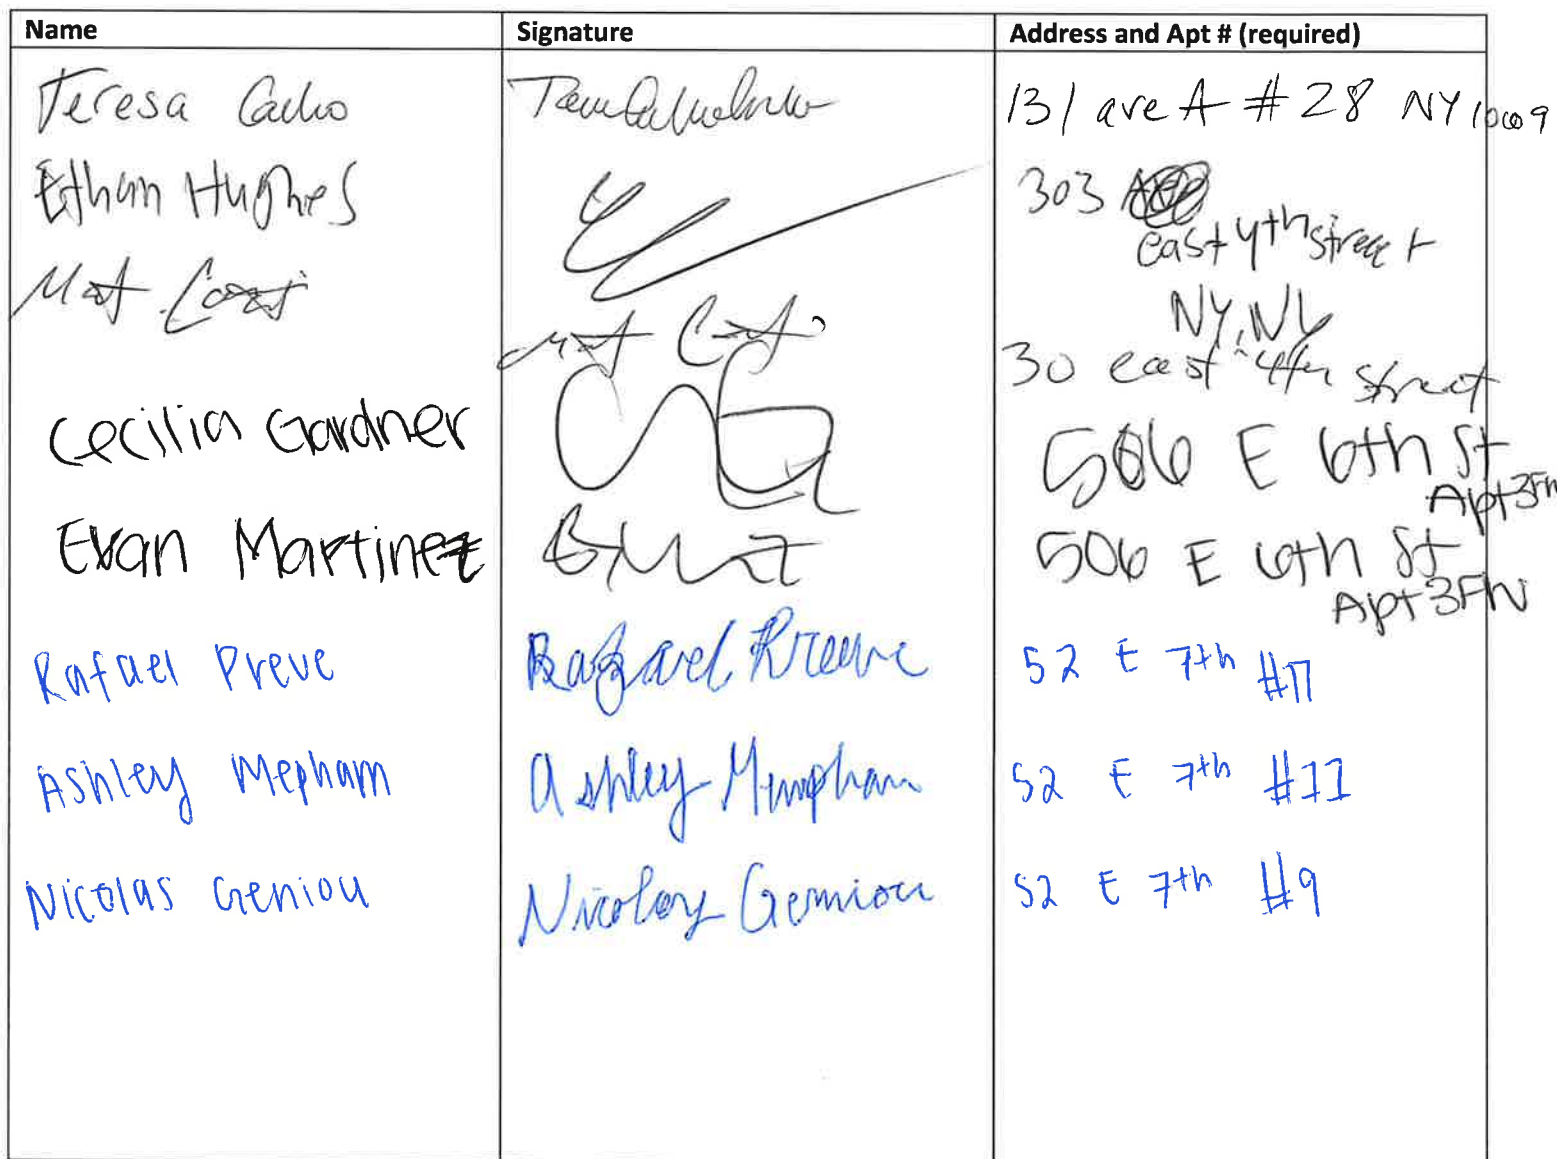 Name Signature Address and Apt # (required)
Teresa 131 ave A # 28 NY 10009
Ethan Hughes 303
east 4th street
NY, NY
Mat 30 east 4th street
Cecilia Gardner CG 506 E 6th St
Apt 3FW
Evan Martinez EMZ 506 E 6th St
Apt 3FW
Rafael Preve Rafael Preve 52 E 7th #17
Ashley Mepham Ashley Mempham 52 E 7th #11
Nicolas Geniou Nicolas Geniou 52 E 7th #9